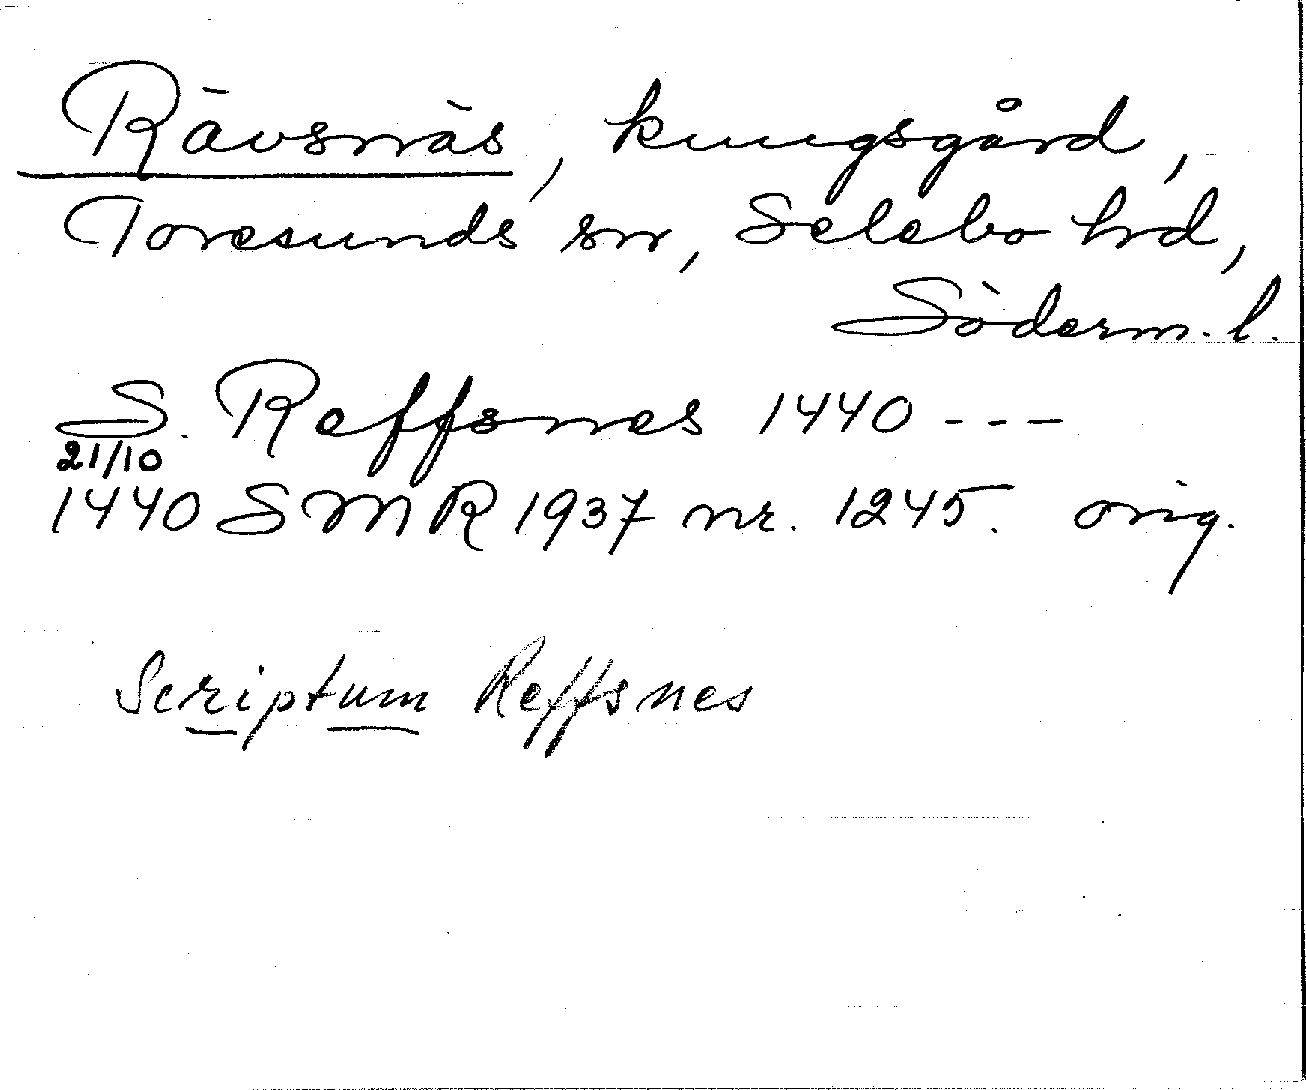 Rävsnäs, kungsgård,
Toresunds sn, Selebo hd,
Söderm. l.
S. Reffsnes 1440 - - -
21/10
1440 SMR 1937 nr. 1245. orig.
Scriptum Reffsnes